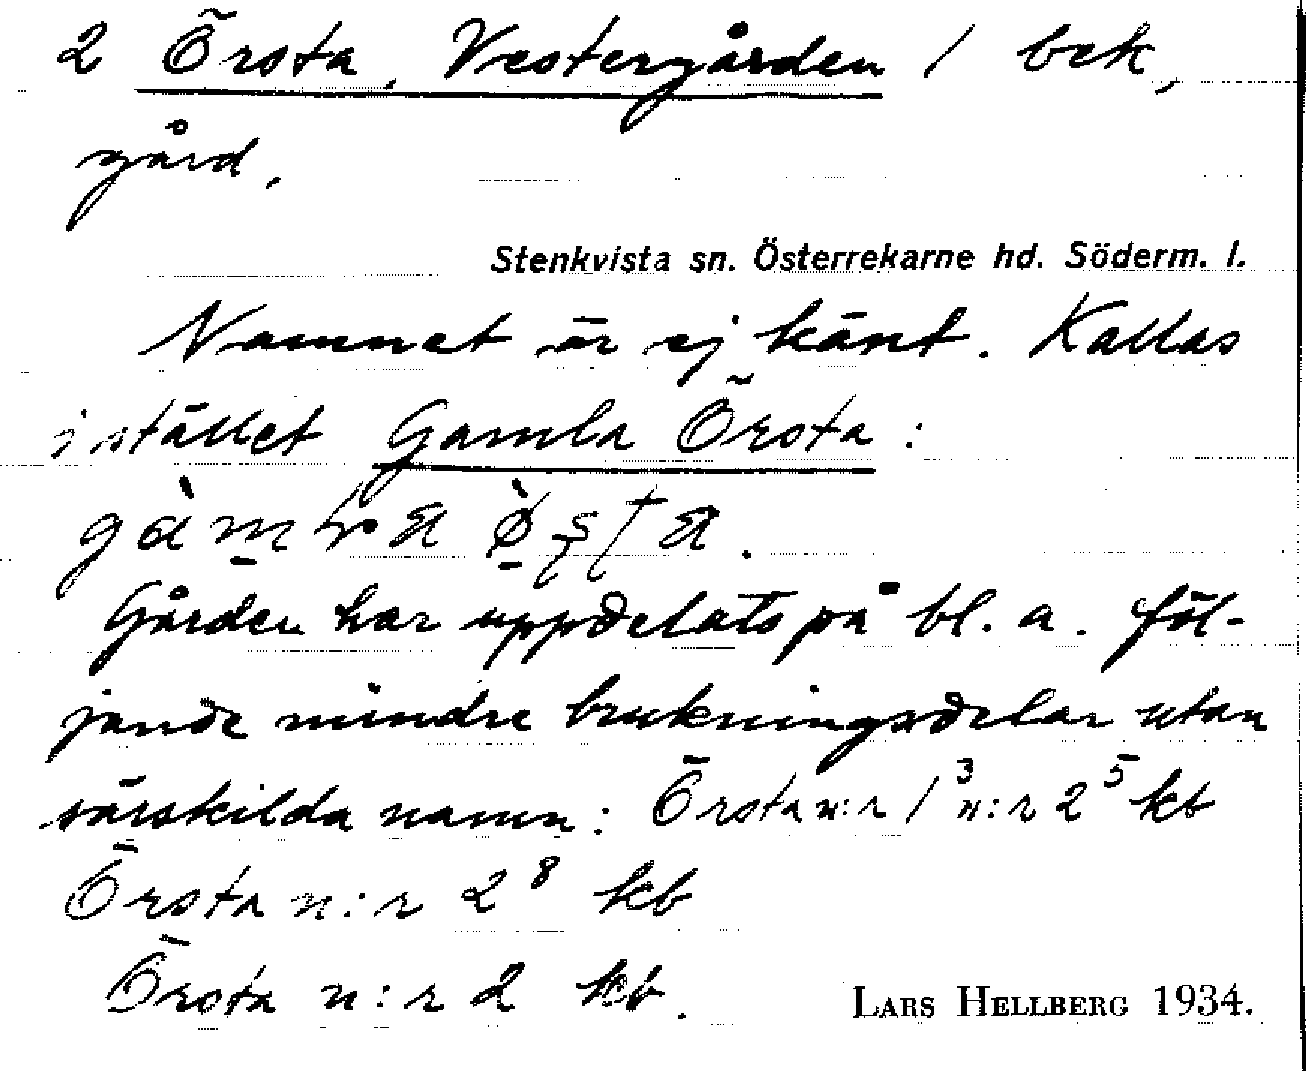 2 Örsta, Vestergården / bek,
gård.
Stenkvista sn. Österrekarne hd. Söderm. l.
Namnet är ej känt. Kallas
i stället Gamla Örsta:
Gården har uppdelats på bl. a. föl-
jande mindre brukningsdelar utan
särskilda namn: Örsta n:r 1³ n:r 2⁵ kb
Örsta n:r 2⁸ kb
Örsta n:r 2 kb.
LARS HELLBERG 1934.